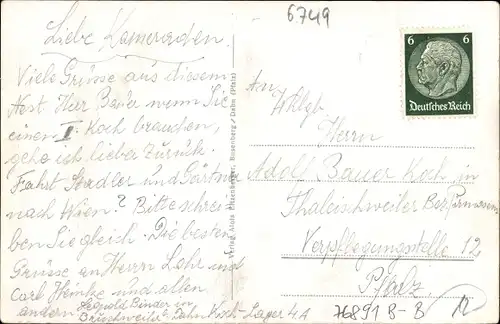 6749
Liebe Kameraden.
Viele Grüsse aus diesem
Nest. Herr Bauer wenn Sie
einen II. Koch brauchen,
gehe ich lieber zurück.
Fährt Stadler und Gärtner
nach Wien? Bitte schrei-
ben Sie gleich. Die besten
Grüsse an Herrn Lohr und
Carl Heinke und allen
andern Leopold Binder in
Bruschweiler b. Dahn Koch-Lager 4A
Verlag Alois Eitzenberger, Busenberg / Dahn (Pfalz)
6 6
Deutsches Reich
An
Herrn
Adolf Bauer Koch in
Thaleischweiler Bez Pirmasens
Verpflegungsstelle 12
Pfalz
76891 B-B